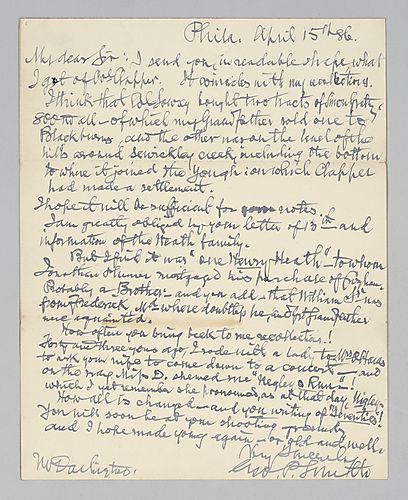 Phila. April 15th 86.
My dear Sir: I send you, in readable shape what
I got of Mr Clapper. It coincides with my recollections.
I think that Col Lowry bought two tracts of Simon Girty
800 in all - of which my Grandfather sold one to
Blackburns and the other was on the level of the
hills around Sewickley creek, including the bottom
to where it joined the Yough: on which Clapper
had made a settlement.
I hope it will be sufficient for your notes.
I am greatly obliged by your letter of 13th and
information of the Heath family.
But I find it was "one Henry Heath" to whom
Jonathan Plumer mortgaged his purchase of
Probably a Brother - and you add - that William Sr. was
from Frederick, Md where doubtless he, and Gt Grandfather
were acquainted.
How often you bring back to me recollections!
Forty and three years ago, I rode with a Lady to
to ask your wife to come down to a concert - and
on the way Miss D. showed me "Negley's Run"!
which I yet remember she pronounced, as at that day,
How all is changed - and you writing of "Seventies"!
You will soon be at your shooting
and I hope made young again - or old and well.
Very Sincerely
Geo. P. Smith
Mr Darlington.